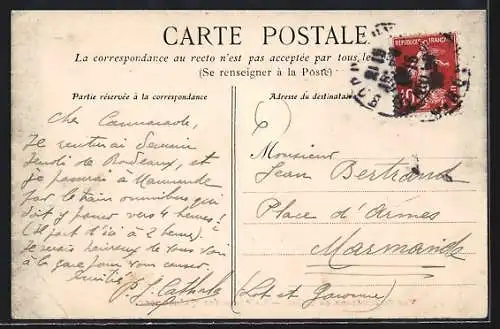 CARTE POSTALE
La correspondance au recto n'est pas acceptée par tous les
(Se renseigner à la Poste)
Partie réservée à la correspondance
Adresse du destinataire
REPUBLIQUE FRANÇAISE
10
Cher Cammarade,
Je rentrerai Demain
Jeudi de Bordeaux, et
je passerai à Marmande
par le train omnibus qui
doit y passer vers 4 heures!
(Il part d'ici à 2 heures).
Je serais heureux de vous voir
à la gare pour vous causer.
Amitiés
Monsieur
Jean Bertrand
Place d'Armes
Marmande
(Lot et Garonne)